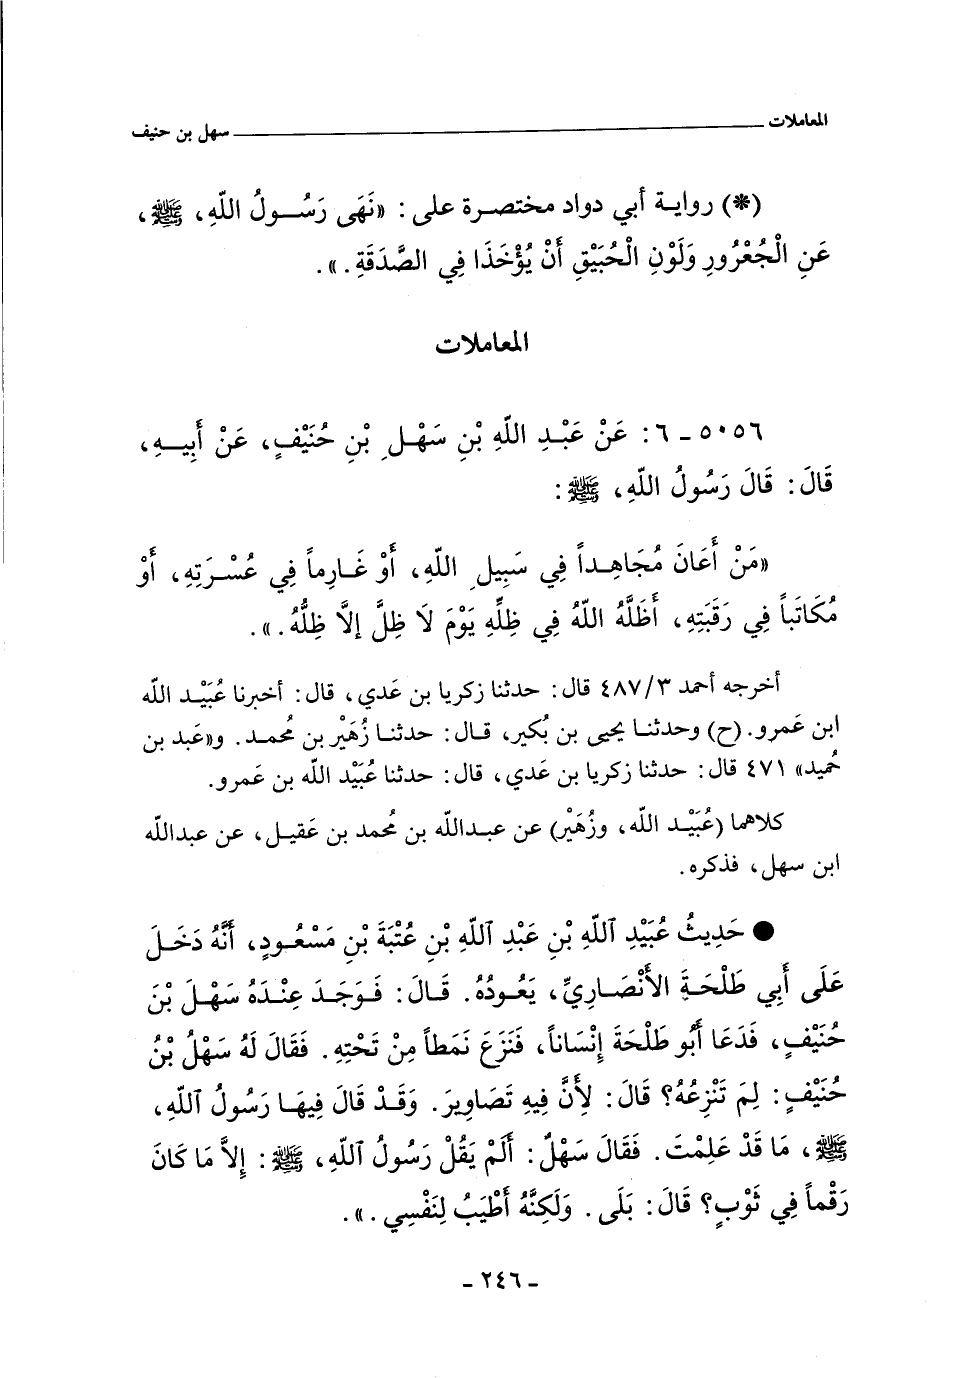 المعاملات ـــــــــــــــــــــــــــــــــ سهل بن حنيف
(*) رواية أبي دواد مختصرة على : «نَهَى رَسُولُ اللّهِ، ﷺ،
عَنِ الْجُعْرُورِ وَلَوْنِ الْحُبَيْقِ أَنْ يُؤْخَذَا فِي الصَّدَقَةِ . » .
المعاملات
٥٠٥٦ ـ ٦ : عَنْ عَبْدِ اللّهِ بْنِ سَهْلِ بْنِ حُنَيْفٍ، عَنْ أَبِيهِ،
قَالَ : قَالَ رَسُولُ اللّهِ، ﷺ :
«مَنْ أَعَانَ مُجَاهِداً فِي سَبِيلِ اللّهِ، أَوْ غَارِماً فِي عُسْرَتِهِ، أَوْ
مُكَاتَباً فِي رَقَبَتِهِ، أَظَلَّهُ اللّهُ فِي ظِلِّهِ يَوْمَ لَا ظِلَّ إلاَّ ظِلُّهُ . » .
أخرجه أحمد ٤٨٧/٣ قال : حدثنا زكريا بن عَدي، قال : أخبرنا عُبَيْد اللّه
ابن عَمرو. (ح) وحدثنا يحيى بن بُكير، قال : حدثنا زُهَيْر بن مُحمد. و«عَبد بن
حُميد» ٤٧١ قال : حدثنا زكريا بن عَدي، قال : حدثنا عُبَيْد اللّه بن عَمرو.
كلاهما (عُبَيْد اللّه، وزُهَيْر) عن عبداللّه بن مُحمد بن عَقيل، عن عبداللّه
ابن سهل، فذكره.
● حَدِيثُ عُبَيْدِ اللّهِ بْنِ عَبْدِ اللّهِ بْنِ عُتْبَةَ بْنِ مَسْعُودٍ، أَنَّهُ دَخَلَ
عَلَى أَبِي طَلْحَةَ الأَنْصَارِيِّ، يَعُودُهُ. قَالَ : فَوَجَدَ عِنْدَهُ سَهْلَ بْنَ
حُنَيْفٍ، فَدَعَا أَبُو طَلْحَةَ إِنْسَاناً، فَنَزَعَ نَمَطاً مِنْ تَحْتِهِ. فَقَالَ لَهُ سَهْلُ بْنُ
حُنَيْفٍ : لِمَ تَنْزِعُهُ؟ قَالَ : لِأَنَّ فِيهِ تَصَاوِيرَ. وَقَدْ قَالَ فِيهَا رَسُولُ اللّهِ،
ﷺ، مَا قَدْ عَلِمْتَ. فَقَالَ سَهْلٌ : أَلَمْ يَقُلْ رَسُولُ اللّهِ، ﷺ : إِلاَّ مَا كَانَ
رَقْماً فِي ثَوْبٍ؟ قَالَ : بَلَى. وَلَكِنَّهُ أَطْيَبُ لِنَفْسِي . » .
- ٢٤٦ -